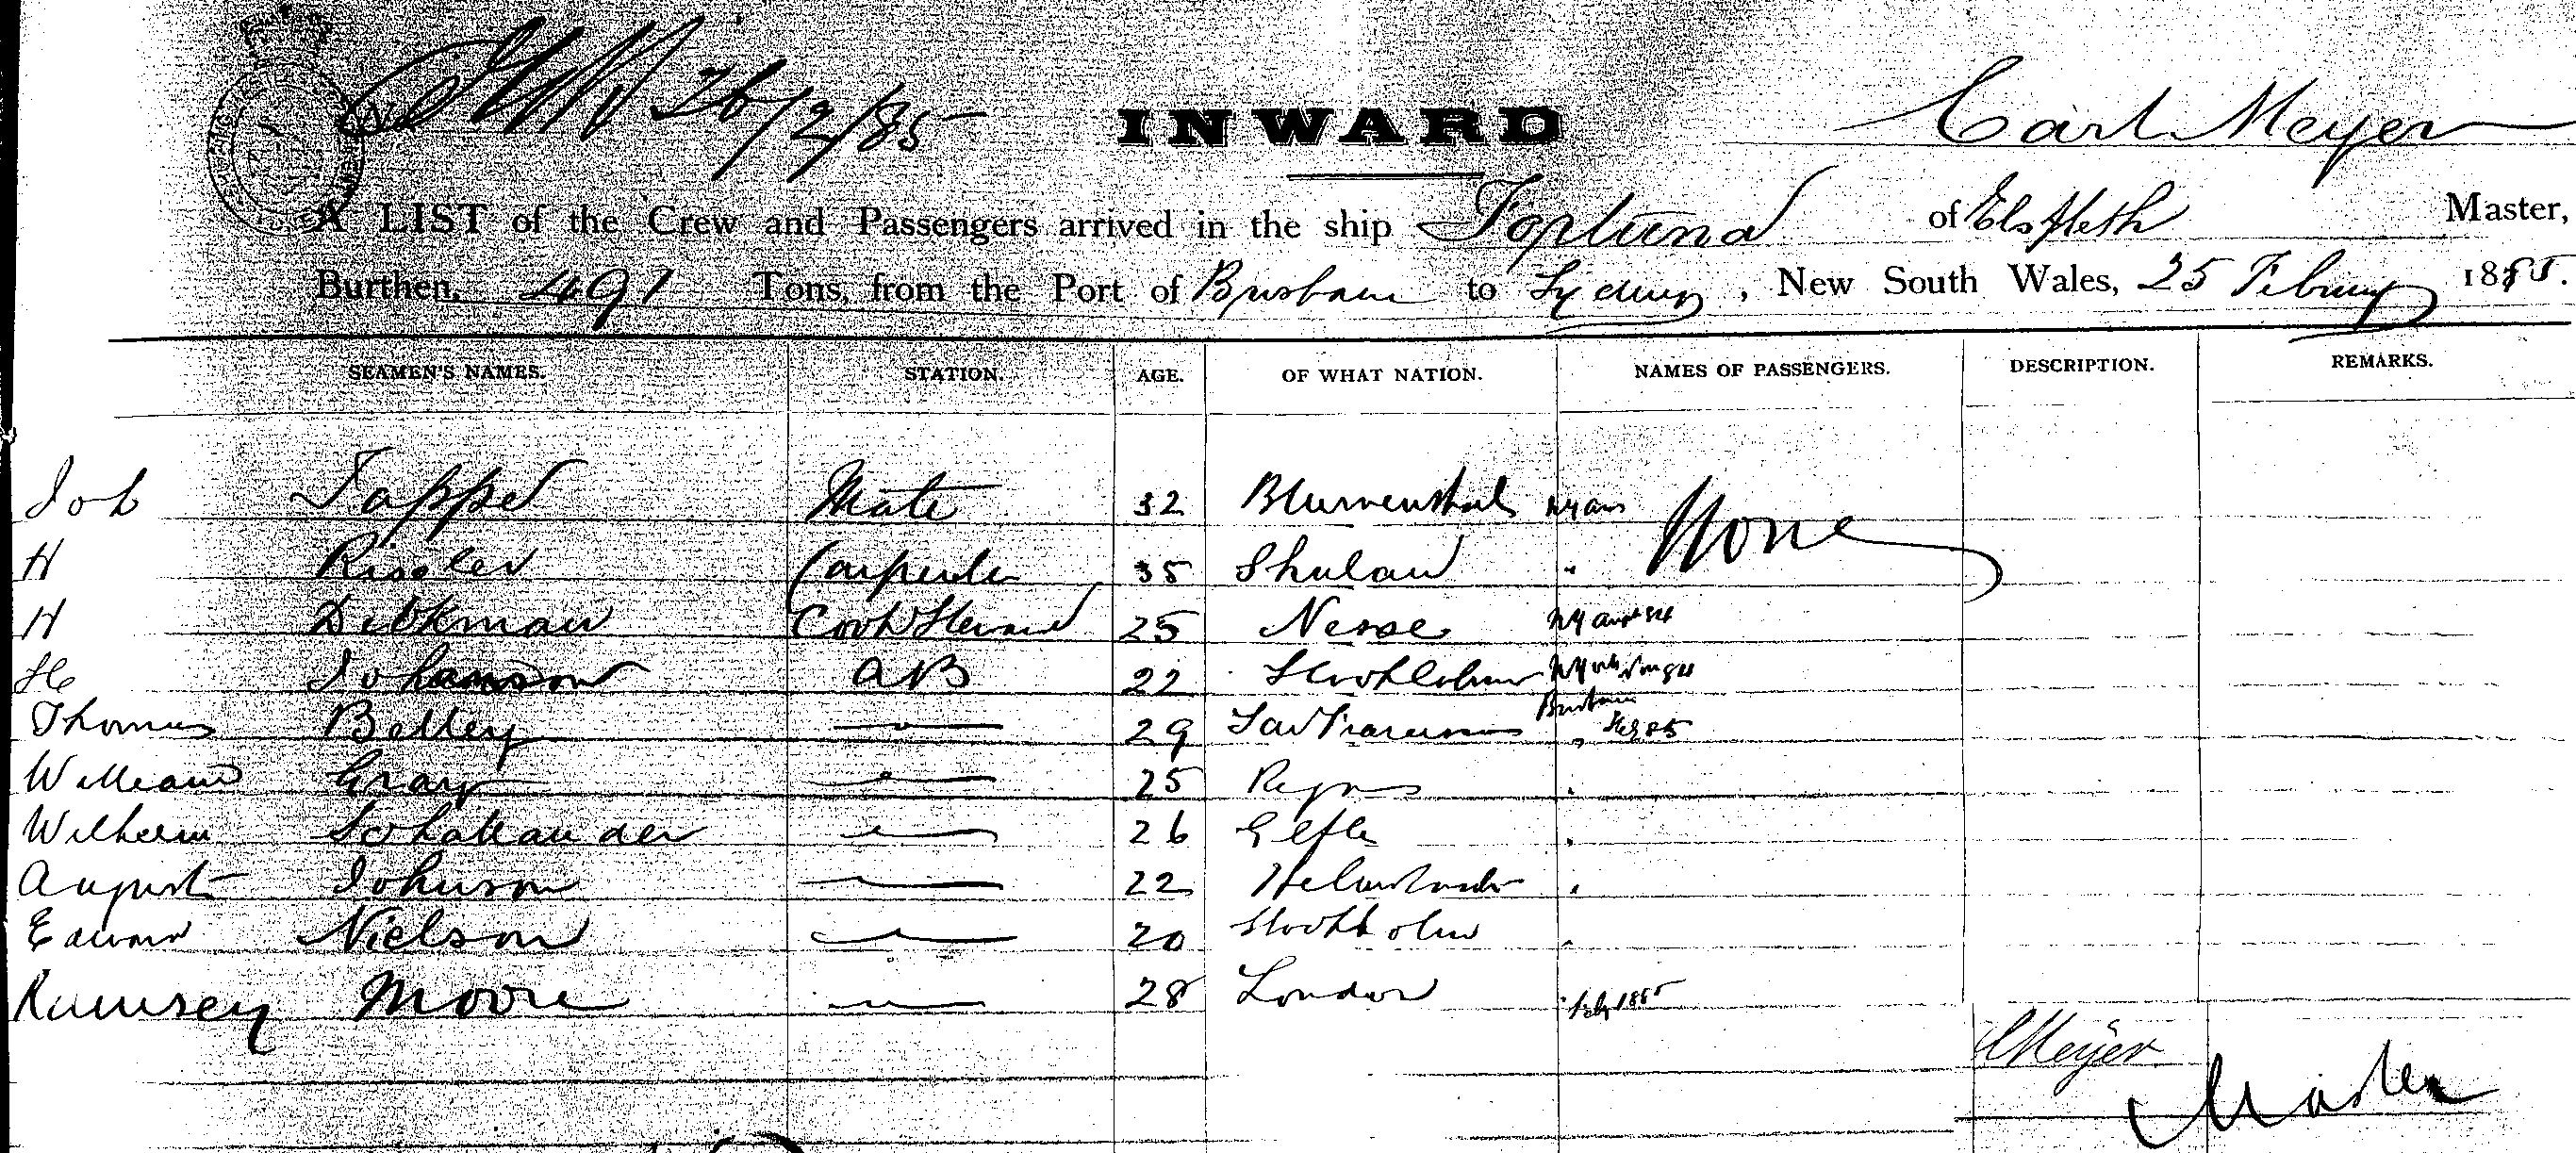 26/2/85
INWARD
Carl Meyer
A LIST of the Crew and Passengers arrived in the ship of Elsfleth Master,
Burthen, 491 Tons, from the Port of Brisbane to Sydney, New South Wales, 25 February 1885.
SEAMEN'S NAMES. STATION. AGE. OF WHAT NATION. NAMES OF PASSENGERS. DESCRIPTION. REMARKS.
Joh Tappe Mate 32 Blumenthal None
H 35 "
H Dickman Cook Steward 25 Nesse
H Johanson AB 22 Stockholm
Brisbane
Thomas 29 San Francisco " Feb 85
William Gray 25 "
Wilhelm 26 Gefle "
August Johnson 22 "
Edward Nielson 20 Stockholm "
Ramsey Moore 28 London " Feby 1885
C Meyer
Master